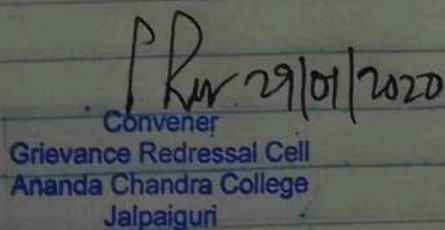 29/01/2020
Convener
Grievance Redressal Cell
Ananda Chandra College
Jalpaiguri